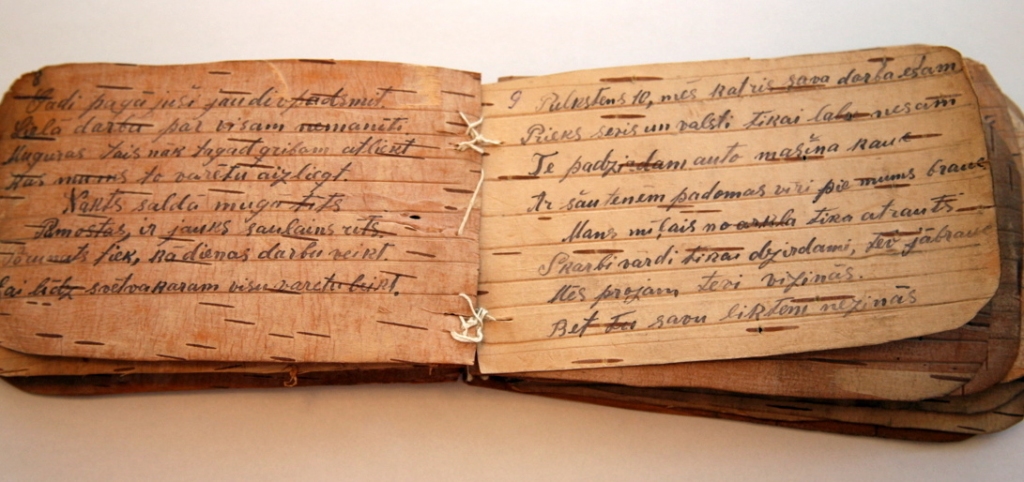 Lielā darbu par visam nemanīti
Muguras tais nak tagad gribam atliekt
Kas mums to varētu aizliegt.
Nakts saldā miega tīts
Pamostas, ir jauks saulains rīts.
tiek, ka dienas darbu veikt
Lai līdz svētvakaram visu varētu beikt.
9 Pulkstens 10, mēs katris sava darbā esam
Prieks siris un valsti tikai labu nesam
Te padzirdam auto mašina kauc
Ar šautenēm padomas vīri pie mums brauc
Mans mīļais no arkla tika atrauts
Skarbi vardi tikai dzirdami, tev jābrauc
Mēs projam tevi vizinās.
Bet tu savu likteni nezinās